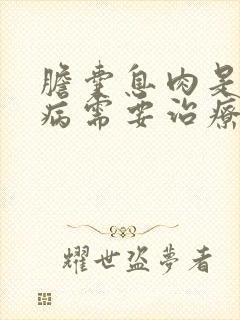 膽囊息肉是
病需要治療
耀世盜夢者